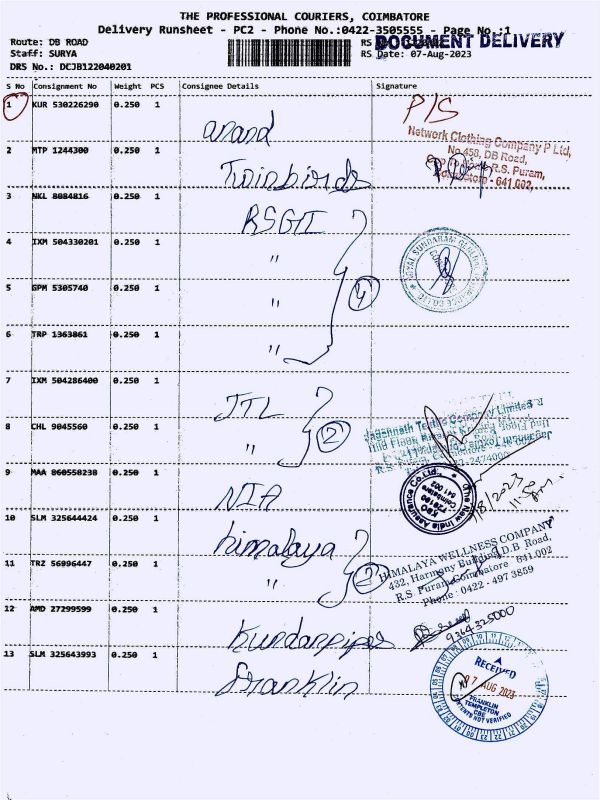 THE PROFESSIONAL COURIERS, COIMBATORE
Delivery Runsheet - PC2 - Phone No.:0422-3505555 - Page No.:1
Route: DB ROAD
Staff: SURYA
DRS No.: DCJB122040201
DOCUMENT DELIVERY
RS Date: 07-Aug-2023
S No Consignment No Weight PCS Consignee Details Signature
1 KUR 530226290 0.250 1 anand P/S
Network Clothing Company P Ltd,
No.458, DB Road,
R.S. Puram,
Coimbatore - 641 002,
2 MTP 1244300 0.250 1 Twinbirds
3 NKL 8084816 0.250 1 RSGI
4 IXM 504330201 0.250 1 "
5 GPM 5305740 0.250 1 " 4
6 TRP 1363861 0.250 1 "
7 IXM 504286400 0.250 1 JTL
8 CHL 9045560 0.250 1 " 2
9 MAA 860558238 0.250 1 NIA
The New India Assurance Co.Ltd.
Coimbatore
641 002
10 SLM 325644424 0.250 1 himalaya
11 TRZ 56996447 0.250 1 " 2
HIMALAYA WELLNESS COMPANY
432, Harmony Building, D.B Road,
R.S. Puram, Coimbatore - 641 002
Phone: 0422 - 497 3859
12 AMD 27299599 0.250 1 Kundanpipes
9364325000
13 SLM 325643993 0.250 1 Franklin
RECEIVED
07 AUG 2023
FRANKLIN
TEMPLETON
CBE
CONTENTS NOT VERIFIED